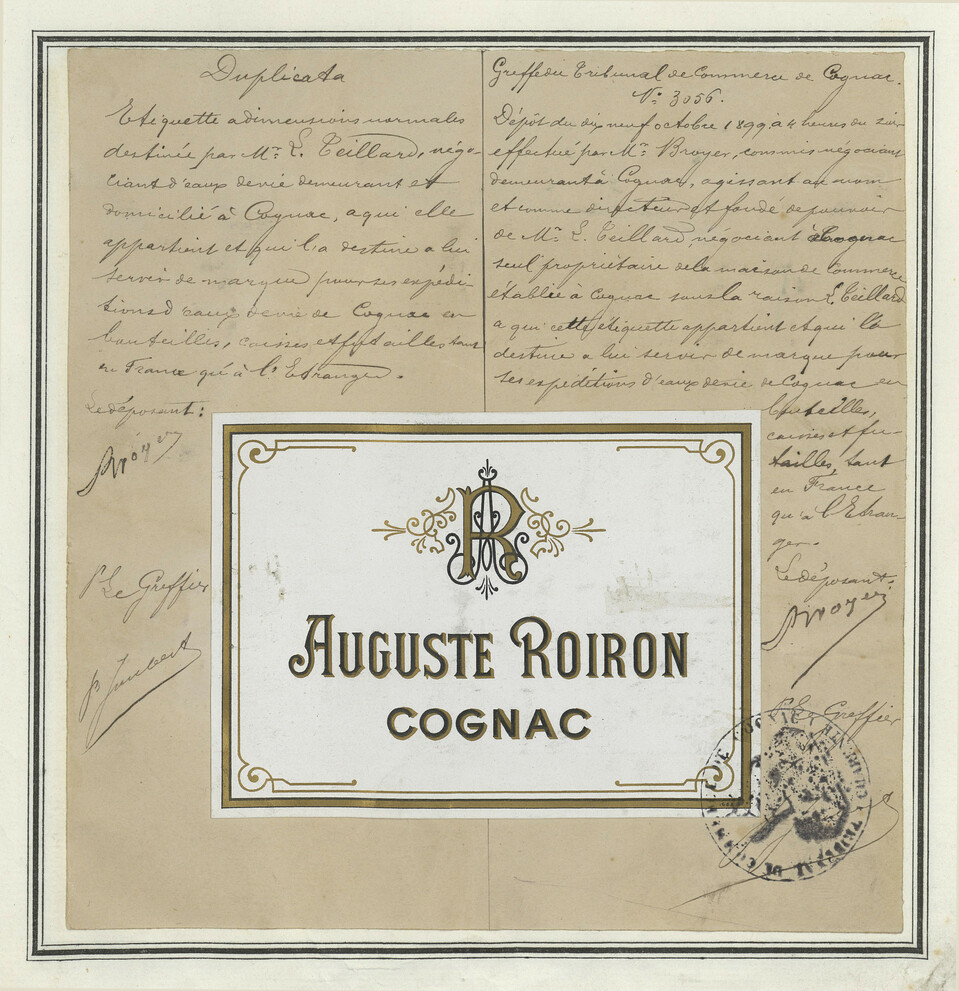 Duplicata
Etiquette a dimensions normales
destinée par Mr. L. Teillard, négo-
ciant d'eaux de vie demeurant et
domicilié à Cognac, a qui elle
appartient et qui l'a destine a lui
servir de marque pour ses expédi-
tions d'eaux de vie de Cognac en
bouteilles, caisses et futailles tant
en France qu'à l'Etranger.
Le déposant:
Broyer
P Le Greffier
Greffe du Tribunal de Commerce de Cognac.
No. 3056.
Dépôt du dix neuf octobre 1899 à 4 heures du soir
effectué par Mr. Broyer, commis négociant
demeurant à Cognac, agissant au nom
et comme directeur et fondé de pouvoir
de Mr. L. Teillard négociant à Cognac
seul propriétaire de la maison de Commerce
établie à Cognac sous la raison L. Teillard
a qui cette étiquette appartient et qui la
destine a lui servir de marque pour
ses expéditions d'eaux de vie de Cognac en
bouteilles,
caisses et fu-
tailles, tant
en France
qu'à l'Etran-
ger.
Le déposant:
Broyer
P Le Greffier
AR
AUGUSTE ROIRON
COGNAC
TRIBUNAL DE COMMERCE DE COGNAC